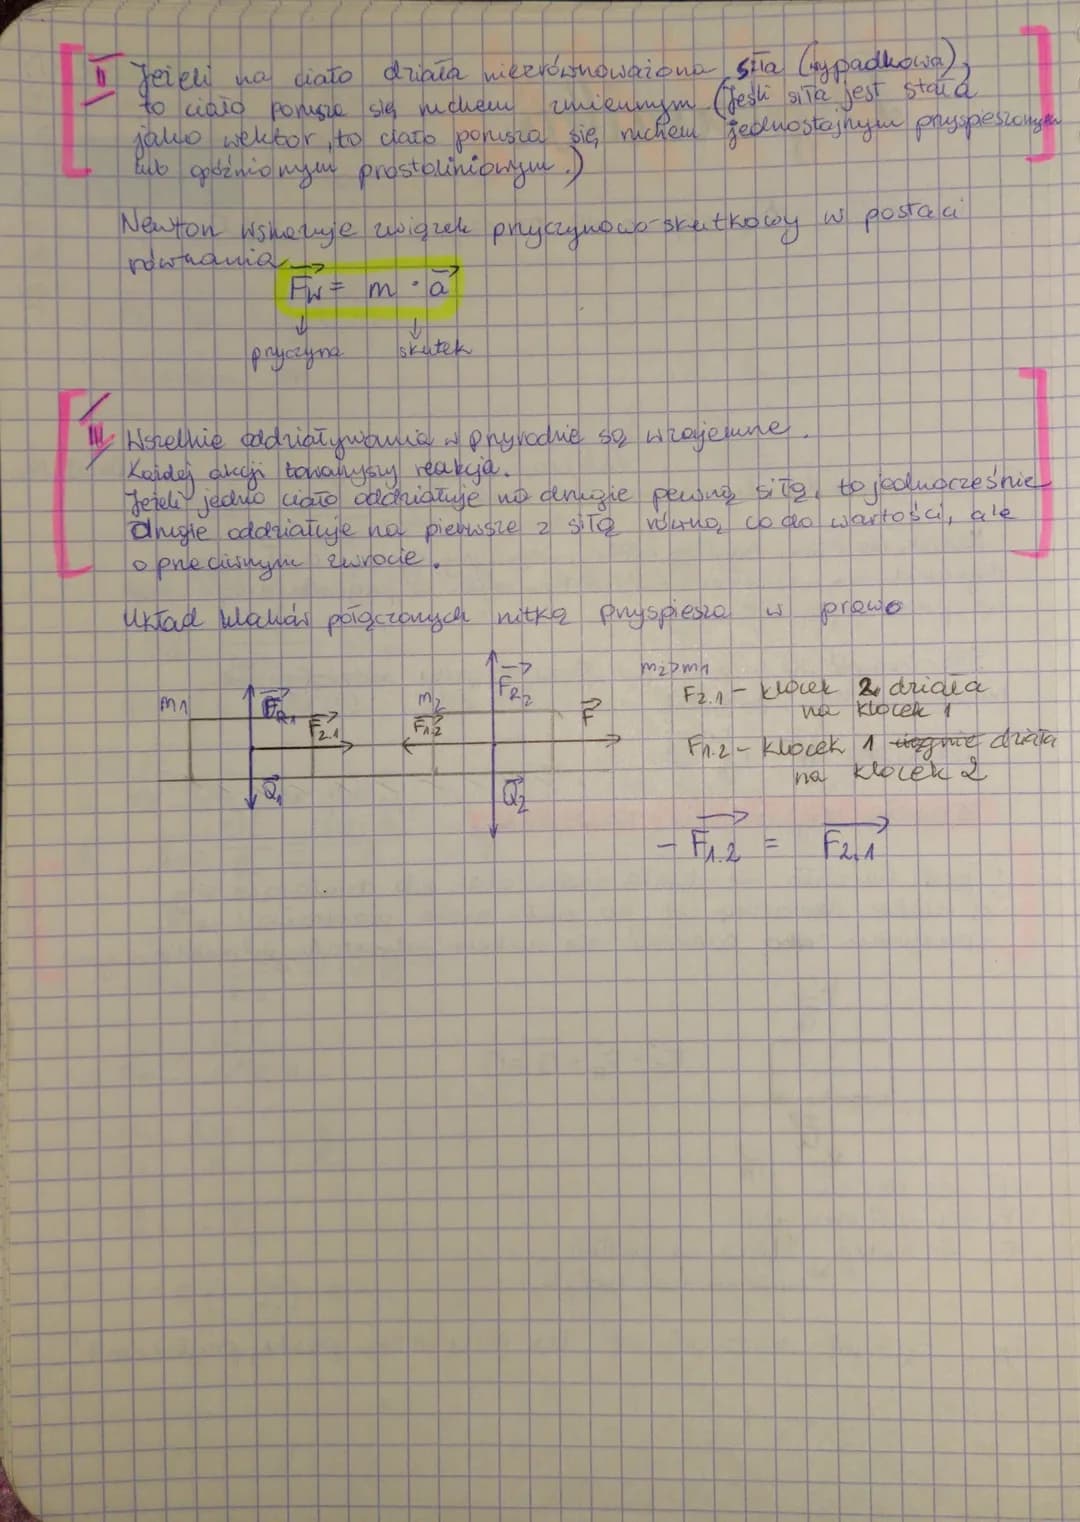 II Jeżeli na ciało działa niezrównoważona siła (wypadkowa),
to ciało porusza się ruchem zmiennym (Jeśli siła jest stała
jako wektor, to ciało porusza się ruchem jednostajnym przyspieszonym
lub opóźnionym prostoliniowym.)
Newton wskazuje związek przyczynowo-skutkowy w postaci
równania
F⃗w = m · a⃗
↓ ↓
przyczyna skutek
III Wszelkie oddziaływania w przyrodzie są wzajemne.
Każdej akcji towarzyszy reakcja.
Jeżeli jedno ciało oddziałuje na drugie pewną siłą, to jednocześnie
drugie oddziałuje na pierwsze z siłą równą co do wartości, ale
o przeciwnym zwrocie.
Układ klocków połączonych nitką przyspiesza w prawo
m1 F⃗R1 F⃗2.1 m2 F⃗1.2 F⃗R2 F⃗ m2>m1
Q⃗1 Q⃗2
F2.1 – klocek 2 działa
na klocek 1
F1.2 – klocek 1 ciągnie działa
na klocek 2
- F⃗1.2 = F⃗2.1